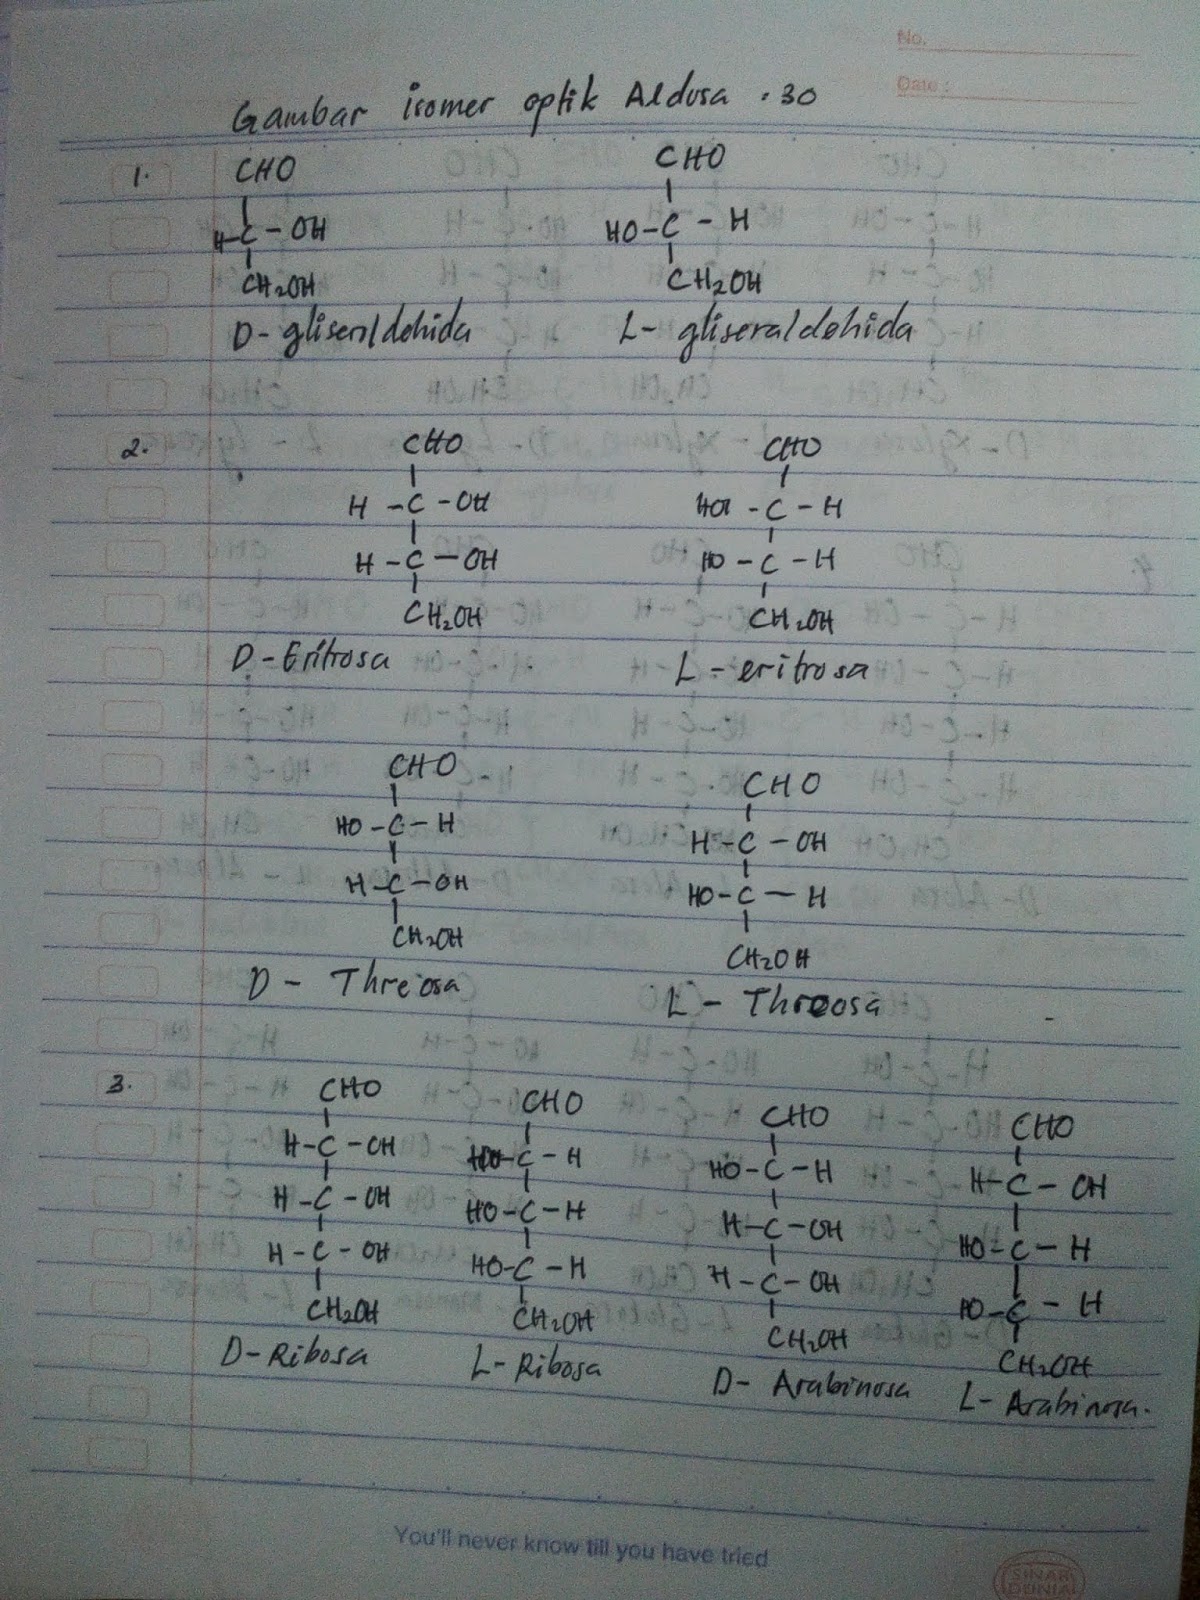 No.
Date :
Gambar isomer optik Aldosa : 30
1. CHO CHO
H-C-OH HO-C-H
CH2OH CH2OH
D-gliseraldehida L-gliseraldehida
2. CHO CHO
H-C-OH HO-C-H
H-C-OH HO-C-H
CH2OH CH2OH
D-Eritrosa L-eritrosa
CHO CHO
HO-C-H H-C-OH
H-C-OH HO-C-H
CH2OH CH2OH
D-Threosa L-Threosa
3. CHO CHO CHO CHO
H-C-OH HO-C-H HO-C-H H-C-OH
H-C-OH HO-C-H H-C-OH HO-C-H
H-C-OH HO-C-H H-C-OH HO-C-H
CH2OH CH2OH CH2OH CH2OH
D-Ribosa L-Ribosa D-Arabinosa L-Arabinosa.
You'll never know till you have tried
SINAR
DUNIA